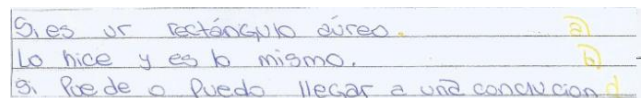 Si es ur rectángulo aúreo. a)
Lo hice y es lo mismo. b)
Si Puede o Puedo llegar a una conclucion d